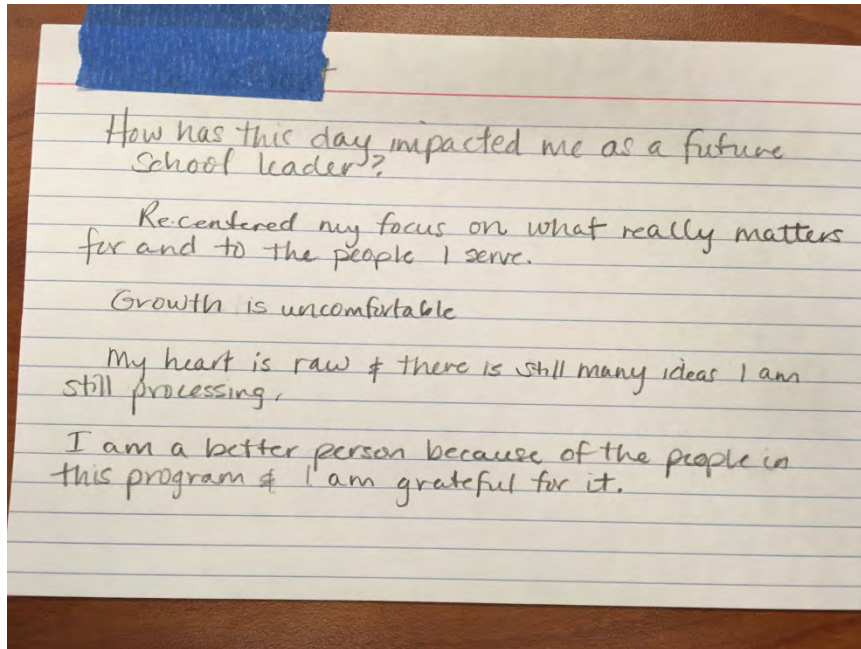 How has this day impacted me as a future
School leader?
Re-centered my focus on what really matters
for and to the people I serve.
Growth is uncomfortable
My heart is raw & there is still many ideas I am
still processing,
I am a better person because of the people in
this program & I am grateful for it.